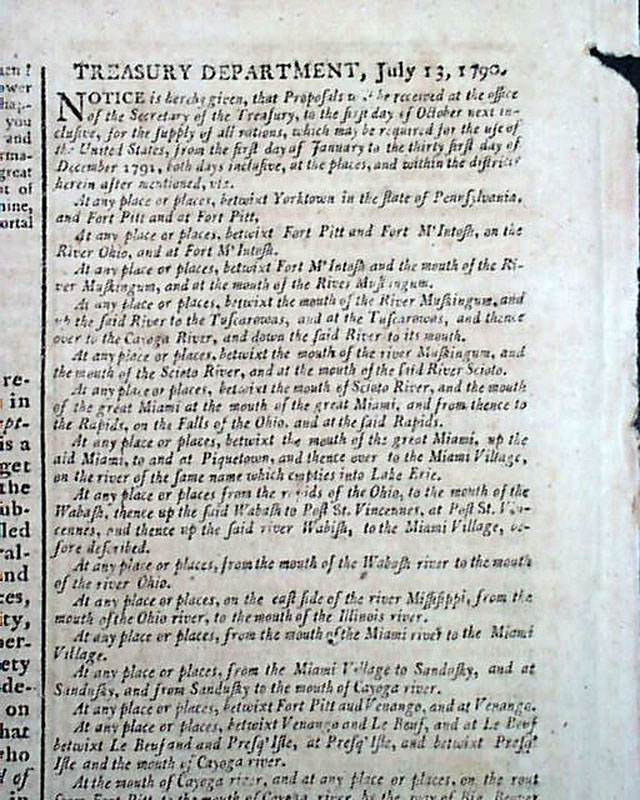 TREASURY DEPARTMENT, July 13, 1790.
NOTICE is hereby given, that Proposals will be received at the office
of the Secretary of the Treasury, to the first day of October next in-
clusive, for the supply of all rations, which may be required for the use of
the United States, from the first day of January to the thirty first day of
December 1791, both days inclusive, at the places, and within the districts
herein after mentioned, viz.
At any place or places, betwixt Yorktown in the state of Pennsylvania,
and Fort Pitt and at Fort Pitt,
At any place or places, betwixt Fort Pitt and Fort M'Intosh, on the
River Ohio, and at Fort M'Intosh.
At any place or places, betwixt Fort M'Intosh and the mouth of the Ri-
ver Muskingum, and at the mouth of the River Muskingum.
At any place or places, betwixt the mouth of the River Muskingum, and
up the said River to the Tuscarowas, and at the Tuscarowas, and thence
over to the Cayoga River, and down the said River to its mouth.
At any place or places, betwixt the mouth of the river Muskingum, and
the mouth of the Scioto River, and at the mouth of the said River Scioto.
At any place or places, betwixt the mouth of Scioto River, and the mouth
of the great Miami at the mouth of the great Miami, and from thence to
the Rapids, on the Falls of the Ohio, and at the said Rapids.
At any place or places, betwixt the mouth of the great Miami, up the
aid Miami, to and at Piquetown, and thence over to the Miami Village,
on the river of the same name which empties into Lake Erie.
At any place or places from the rapids of the Ohio, to the mouth of the
Wabash, thence up the said Wabash to Post St. Vincennes, at Post St. Vin-
cennes, and thence up the said river Wabash, to the Miami Village, be-
fore described.
At any place or places, from the mouth of the Wabash river to the mouth
of the river Ohio.
At any place or places, on the east side of the river Mississippi, from the
mouth of the Ohio river, to the mouth of the Illinois river.
At any place or places, from the mouth of the Miami river to the Miami
Village.
At any place or places, from the Miami Village to Sandusky, and at
Sandusky, and from Sandusky to the mouth of Cayoga river.
At any place or places, betwixt Fort Pitt and Venango, and at Venango.
At any place or places, betwixt Venango and Le Beuf, and at Le Beuf
betwixt Le Beuf and and Presq' Isle, at Presq' Isle, and betwixt Presq'
Isle and the mouth of Cayoga river.
At the mouth of Cayoga river, and at any place or places, on the rout
from Fort Pitt, to the mouth of Cayoga river, by the way of Big Beaver
you
and
great
of
re-
in
is a
get
the
and
on
of
in